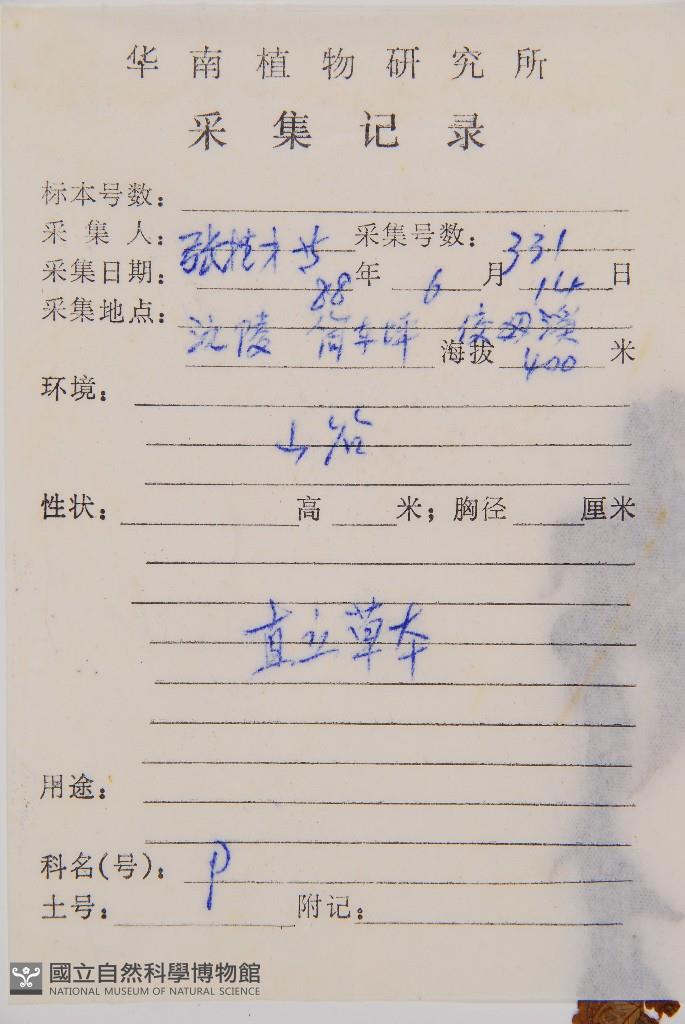 华南植物研究所
采集记录
标本号数:
采集人: 张桂才 等 采集号数: 331
采集日期: 88年 6月 14日
采集地点: 沅陵 筲车坪
海拔 400 米
环境:
山谷
性状: 高 米; 胸径 厘米
直立草本
用途:
科名(号): P
土号: 附记:
國立自然科學博物館
NATIONAL MUSEUM OF NATURAL SCIENCE